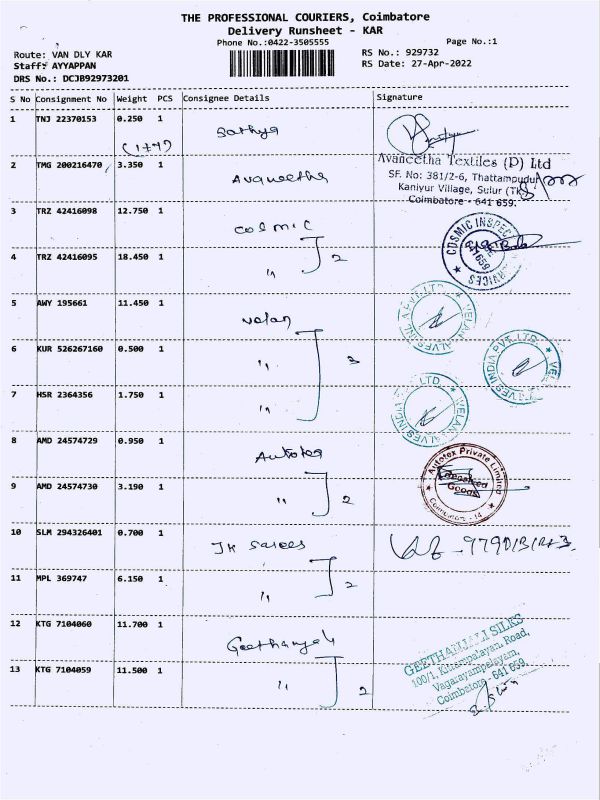 THE PROFESSIONAL COURIERS, Coimbatore
Delivery Runsheet - KAR
Phone No.:0422-3505555 Page No.:1
Route: VAN DLY KAR RS No.: 929732
Staff: AYYAPPAN RS Date: 27-Apr-2022
DRS No.: DCJB92973201
S No Consignment No Weight PCS Consignee Details Signature
1 TNJ 22370153 0.250 1 Sathya
2 TMG 200216470 3.350 1 Avaneetha
Avaneetha Textiles (P) Ltd
SF. No: 381/2-6, Thattampudur
Kaniyur Village, Sulur (TK)
Coimbatore - 641 659.
3 TRZ 42416098 12.750 1 Cosmic
4 TRZ 42416095 18.450 1 " 2
COSMIC INSPECTION SERVICES
641 659
5 AWY 195661 11.450 1 Velan
6 KUR 526267160 0.500 1 " 3
7 HSR 2364356 1.750 1 "
VELAN VALVES INDIA PVT. LTD.
VELAN VALVES INDIA PVT. LTD.
VELAN VALVES INDIA PVT. LTD.
8 AMD 24574729 0.950 1 Autotex
9 AMD 24574730 3.190 1 " 2
Autotex Private Limited
Received
Goods
Coimbatore - 14
10 SLM 294326401 0.700 1 JK Sarees
11 MPL 369747 6.150 1 " 2
12 KTG 7104060 11.700 1 Geethanjali
13 KTG 7104059 11.500 1 " 2
GEETHANJALI SILKS
100/1, Kittampalayam Road,
Vagarayampalayam,
Coimbatore - 641 659.